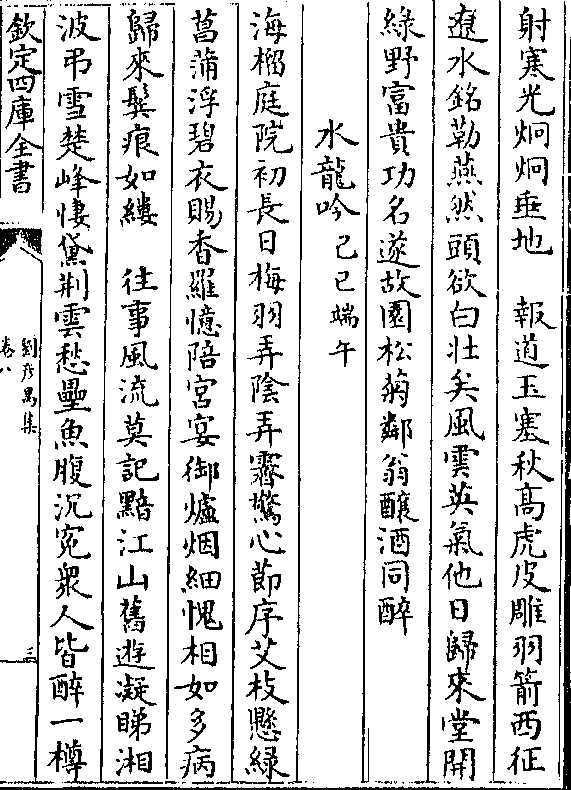 射寒光炯炯垂地　報道玉塞秋髙虎皮雕羽箭西征
遼水銘勒燕然頭欲白壯矣風雲英氣他日歸來堂開
緑野富貴功名遂故園松菊鄰翁釀酒同醉
水龍吟 己巳端午
海榴庭院初長日梅羽弄隂弄霽驚心節序艾枝懸緑
菖蒲浮碧衣賜香羅憶陪宮宴御爐烟細愧相如多病
歸來鬂痕如縷　往事風流莫記黯江山舊遊凝睇湘
波弔雪楚峰悽黛荆雲愁壘魚腹沉寃衆人皆醉一樽
欽定四庫全書
劉彦昺集
卷八
三